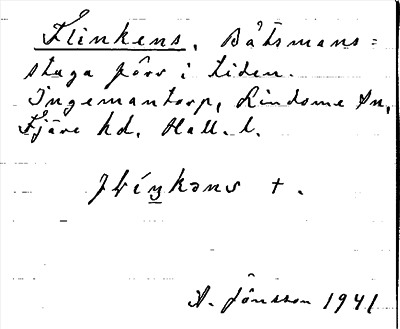 Flinkens, Båtsmans=
stuga förr i tiden.
Ingemantorp, Lindome sn,
Fjäre hd, Hall. l.
A. Jönsson 1941